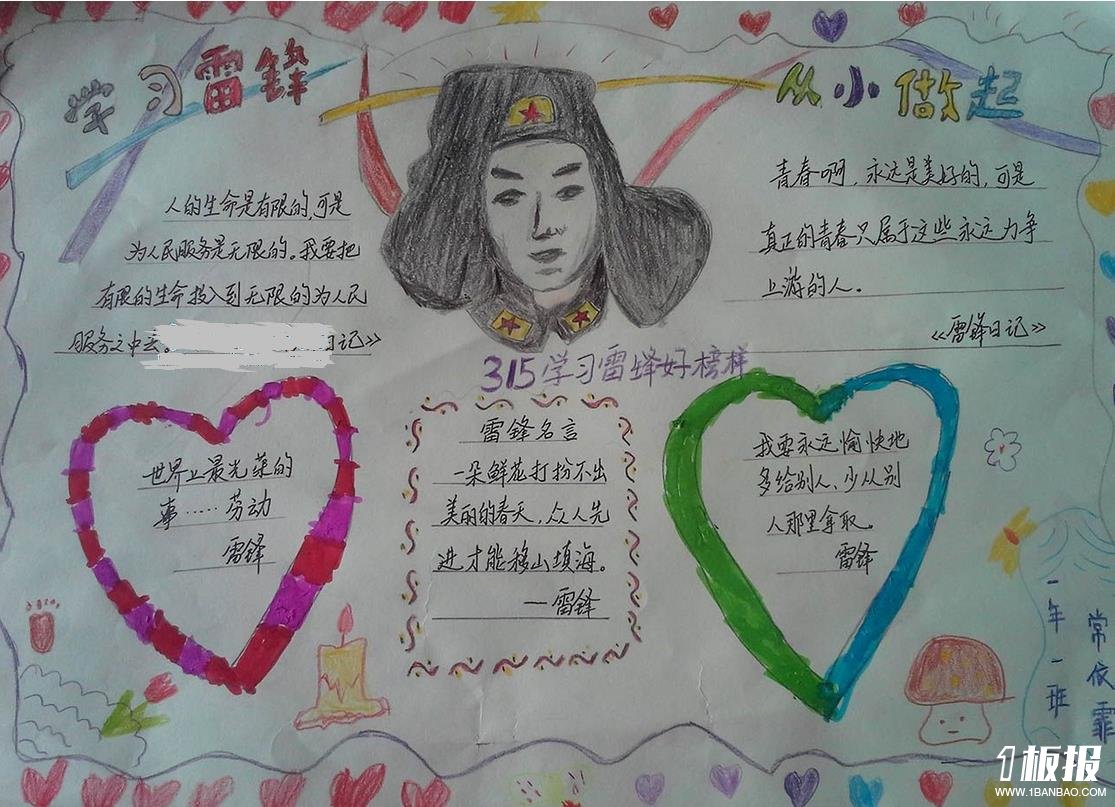 学习雷锋
从小做起
人的生命是有限的,可是
为人民服务是无限的。我要把
有限的生命投入到无限的为人民
服务之中去。
日记》
青春啊,永远是美好的,可是
真正的青春只属于这些永远力争
上游的人。
《雷锋日记》
315学习雷锋好榜样
世界上最光荣的
事……劳动
雷锋
雷锋名言
一朵鲜花打扮不出
美丽的春天,众人先
进才能移山填海。
—雷锋
我要永远愉快地
多给别人、少从别
人那里拿取。
雷锋
一年一班
常依霏
1板报
WWW.1BANBAO.COM